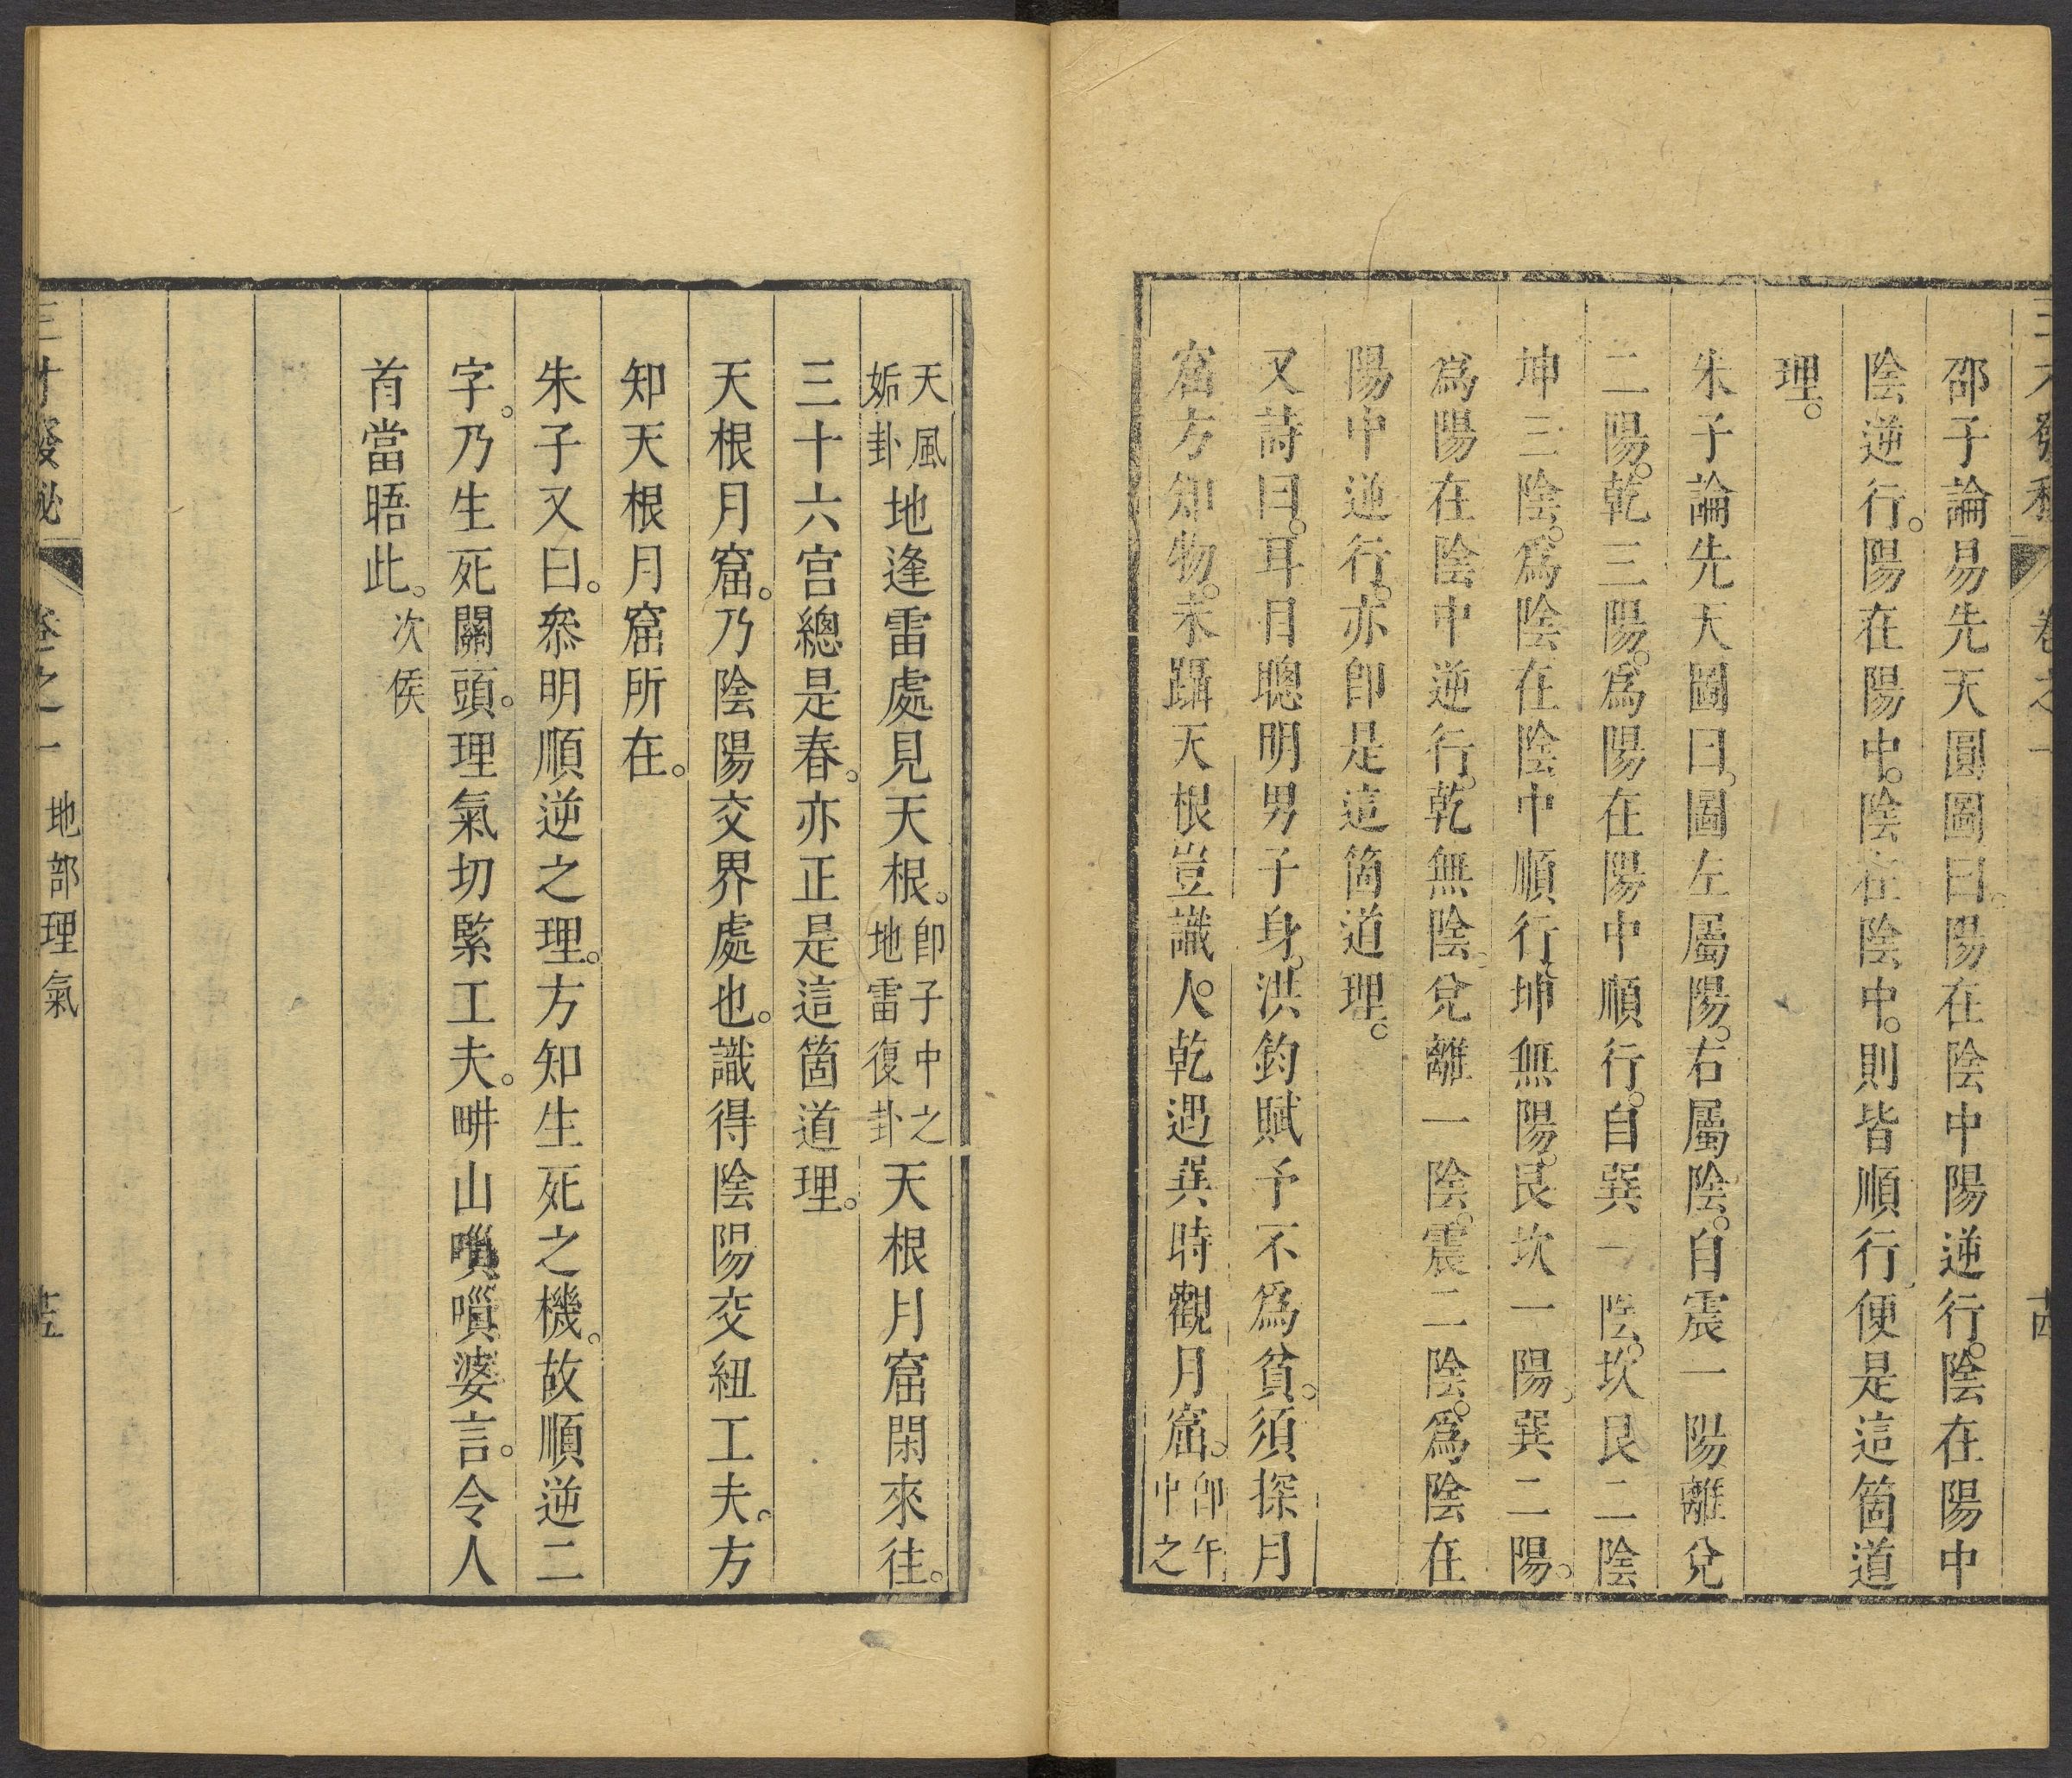 三才發秘 卷之一 十四
邵子論易先天圓圖曰。陽在陰中陽逆行。陰在陽中
陰逆行。陽在陽中。陰在陰中。則皆順行。便是這箇道
理。
朱子論先天圖曰。圖左屬陽。右屬陰。自震一陽離兌
二陽。乾三陽。爲陽在陽中順行。自巽一陰。坎艮二陰
坤三陰。爲陰在陰中順行。坤無陽。艮坎一陽。巽二陽。
爲陽在陰中逆行。乾無陰。兌離一陰。震二陰。爲陰在
陽中逆行。亦卽是這箇道理。
又詩曰。耳目聰明男子身。洪鈞賦予不爲貧。須探月
窟方知物。未躡天根豈識人。乾遇巽時觀月窟。卽午中之
天風姤卦地逢雷處見天根。卽子中之地雷復卦天根月窟閑來往。
三十六宮總是春。亦正是這箇道理。
天根月窟。乃陰陽交界處也。識得陰陽交紐工夫。方
知天根月窟所在。
朱子又曰。叅明順逆之理。方知生死之機。故順逆二
字。乃生死關頭。理氣切緊工夫。畊山嗩嗩婆言。令人
首當晤此。次侯
三才發秘 卷之一 地部理氣 十五